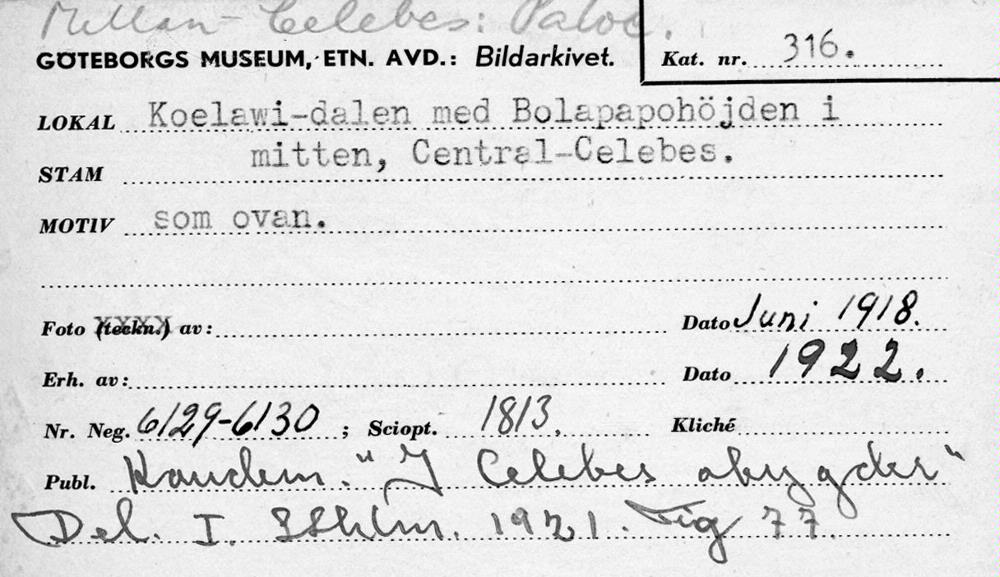 Mellan-Celebes: Paloe.
GÖTEBORGS MUSEUM, ETN. AVD.: Bildarkivet. Kat. nr. 316.
LOKAL Koelawi-dalen med Bolapapohöjden i
mitten, Central-Celebes.
STAM
MOTIV som ovan.
Foto (teckn.) av: Dato Juni 1918.
Erh. av: Dato 1922.
Nr. Neg. 6129-6130 ; Sciopt. 1813. Kliché
Publ. Kaudern. "I Celebes obygder"
Del. I. Sthlm. 1921. Fig 77.